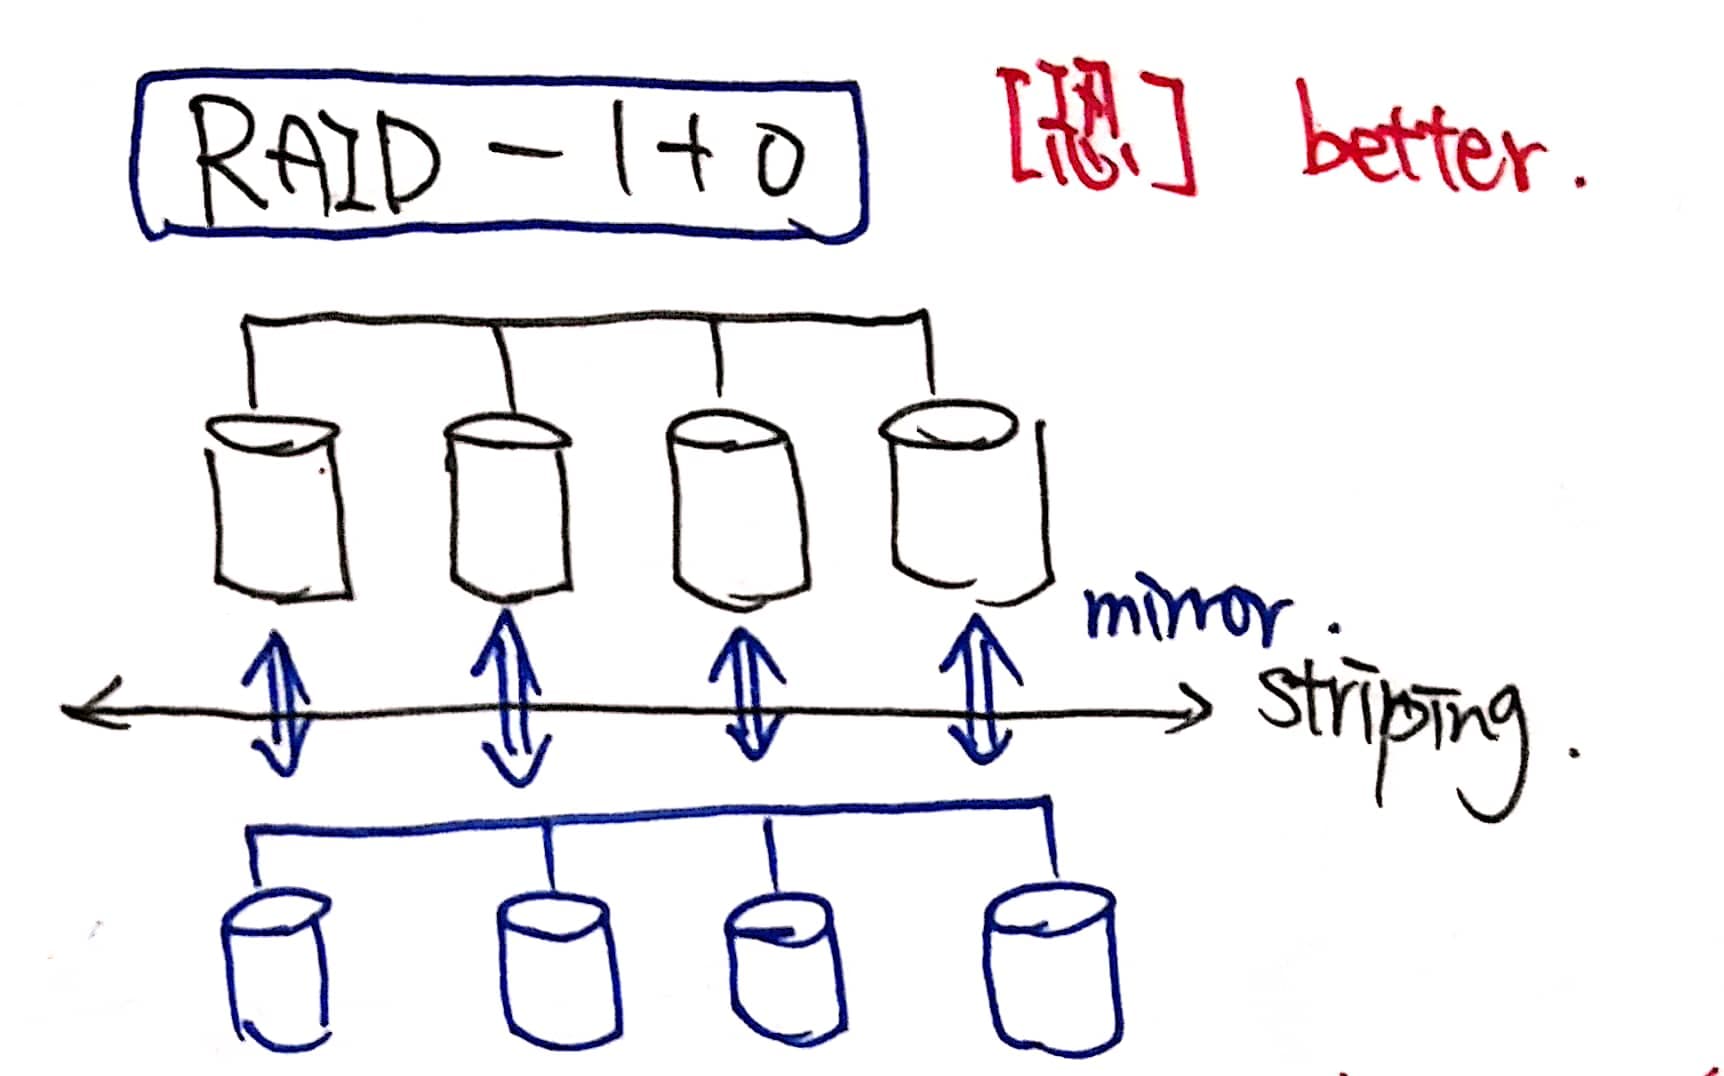 RAID - 1+0
better.
mirror.
striping.